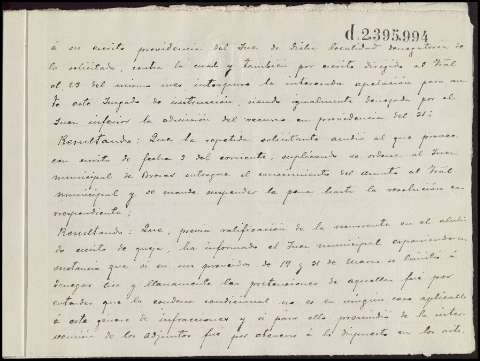 d.2395.994
á su escrito providencia del Juez de dicha localidad denegatoria de
lo solicitado, contra la cual y también por escrito dirigido al Tral
el 23 del mismo mes interpuso la interesada apelación para an
te este Juzgado de instrucción, siendo igualmente denegada por el
Juez inferior la admisión del recurso en providencia del 31:
Resultando: Que la repetida solicitante acudió al que provee
con escrito de fecha 2 del corriente, suplicando se ordene al Juez
municipal de entregue el conocimiento del asunto al Tral
municipal y se mande suspender la pena hasta la resolución co
rrespondiente:
Resultando: Que, previa ratificación de la recurrente en el aludi
do escrito de queja, ha informado el Juez municipal exponiendo en
sustancia que si en sus proveídos de 19 y 31 de Marzo se limitó á
denegar lisa y llanamente las pretensiones de aquella fué por
entender que la condena condicional no es en ningún caso aplicable
á esta género de infracciones y si para ello prescindió de la inter
vención de los adjuntos fué por atenerse á lo dispuesto en los arts.